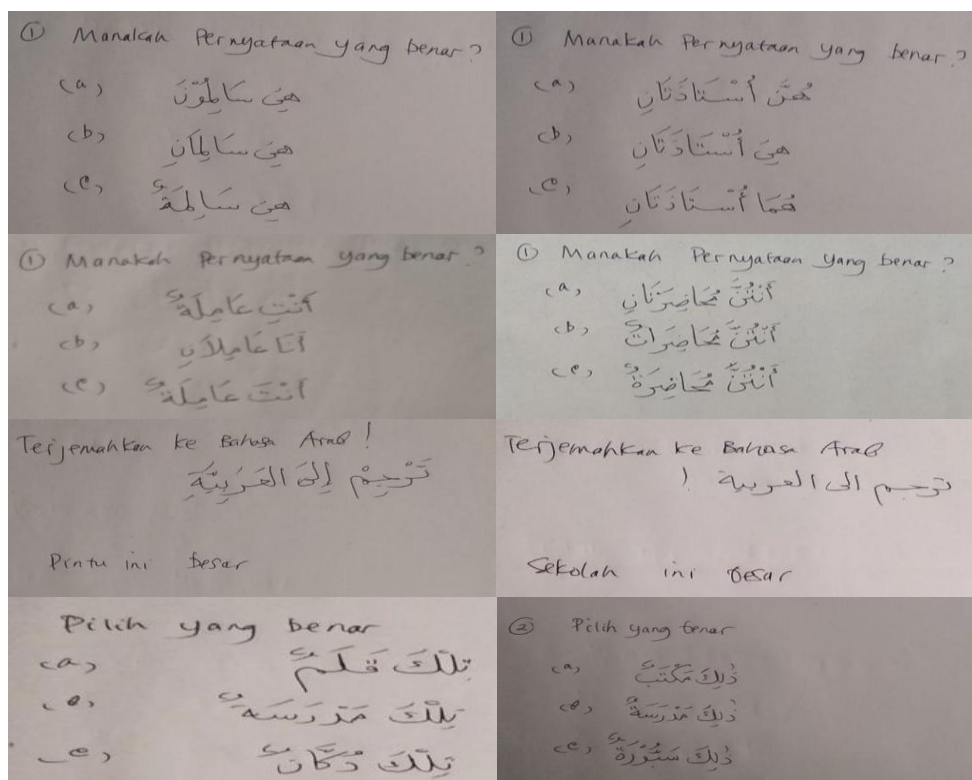 ① Manakah Pernyataan yang benar?
(a) هِيَ سَالِمُوْنَ
(b) هِيَ سَالِمَانِ
(c) هِيَ سَالِمَةٌ
① Manakah Pernyataan yang benar?
(a) هُنَّ أُسْتَاذَتَانِ
(b) هِيَ أُسْتَاذَتَانِ
(c) هُمَا أُسْتَاذَتَانِ
① Manakah Pernyataan yang benar?
(a) أَنْتِ عَامِلَةٌ
(b) أَنَا عَامِلَانِ
(c) أَنْتَ عَامِلَةٌ
① Manakah Pernyataan yang benar?
(a) أَنْتُنَّ مُحَاضِرَتَانِ
(b) أَنْتُنَّ مُحَاضِرَاتٌ
(c) أَنْتُنَّ مُحَاضِرَةٌ
Terjemahkan ke Bahasa Arab!
تَرْجِمْ إِلَى العَرَبِيَّةِ
Pintu ini besar
Terjemahkan ke Bahasa Arab
ترجم الى العربية !
Sekolah ini besar
Pilih yang benar
(a) تِلْكَ قَلَمٌ
(b) تِلْكَ مَدْرَسَةٌ
(c) تِلْكَ دُكَّانٌ
② Pilih yang benar
(a) ذٰلِكَ مَكْتَبٌ
(b) ذٰلِكَ مَدْرَسَةٌ
(c) ذٰلِكَ سَبُّوْرَةٌ